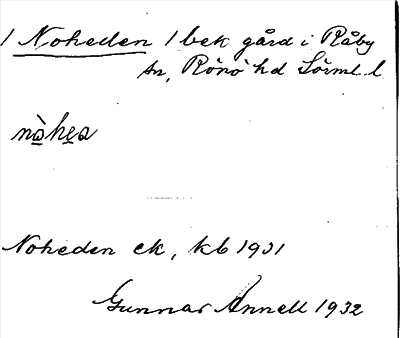 1 Noheden 1 bek gård i Råby
sn, Rönö hd Sörml. l
nòhea
Noheden ek, kb 1931
Gunnar Annell 1932